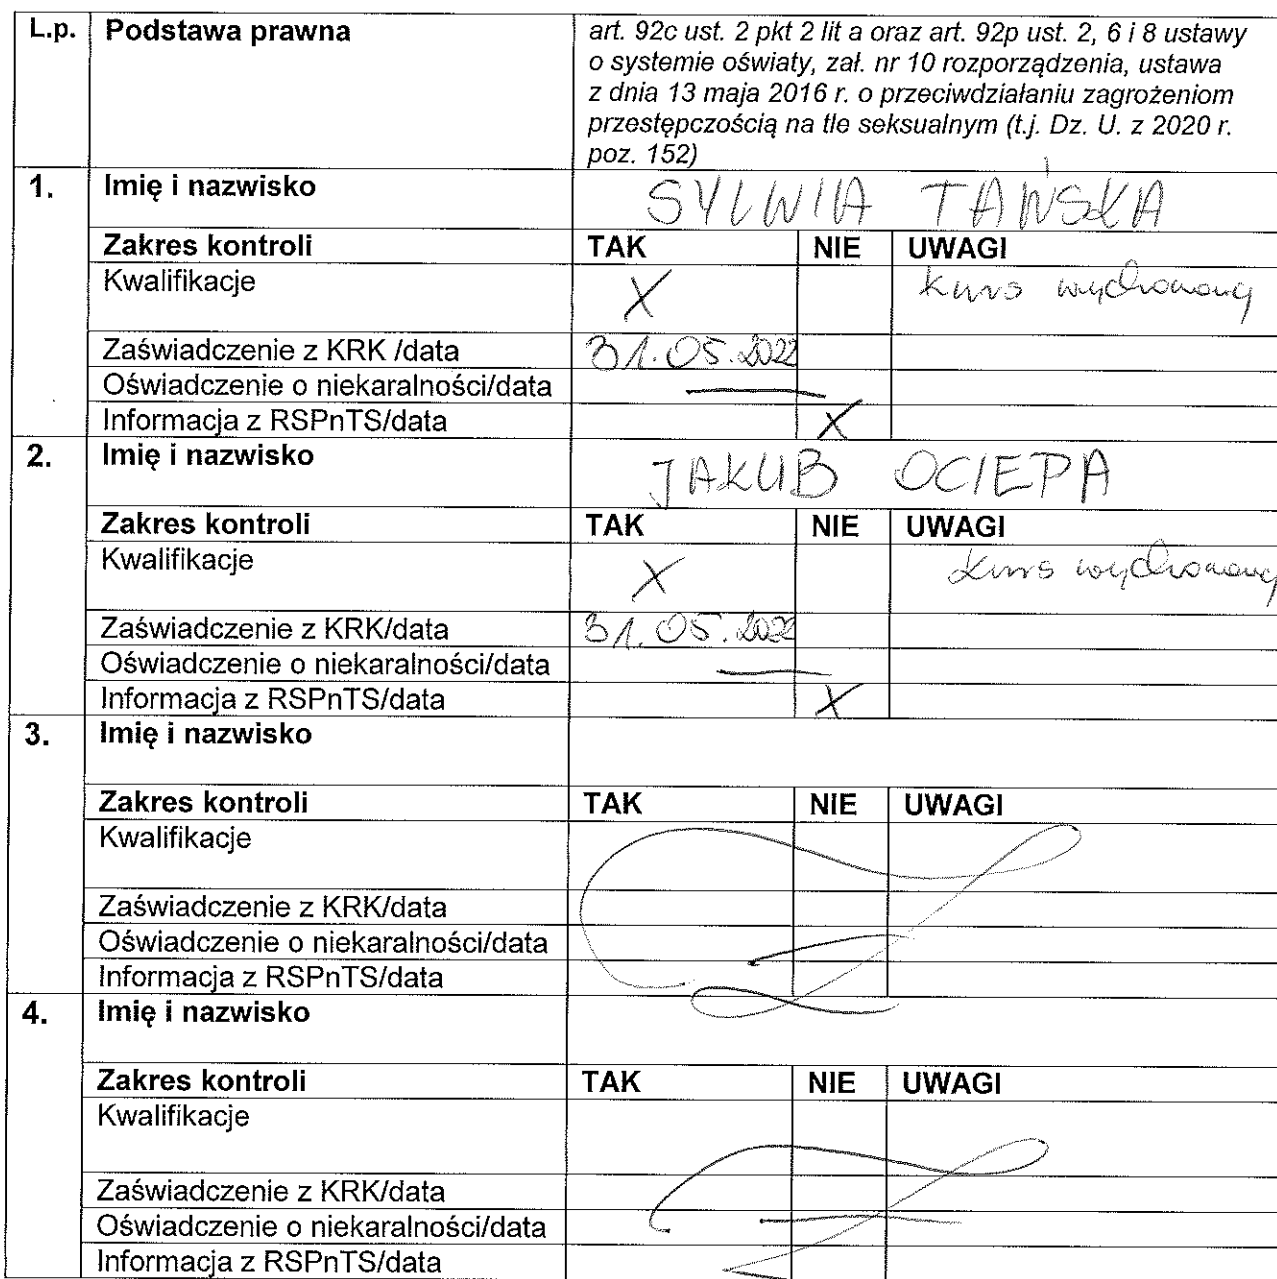 L.p. Podstawa prawna art. 92c ust. 2 pkt 2 lit a oraz art. 92p ust. 2, 6 i 8 ustawy
o systemie oświaty, zał. nr 10 rozporządzenia, ustawa
z dnia 13 maja 2016 r. o przeciwdziałaniu zagrożeniom
przestępczością na tle seksualnym (t.j. Dz. U. z 2020 r.
poz. 152)
1. Imię i nazwisko SYLWIA TAŃSKA
Zakres kontroli TAK NIE UWAGI
Kwalifikacje X kurs wychowawcy
Zaświadczenie z KRK /data 31.05.2022
Oświadczenie o niekaralności/data —
Informacja z RSPnTS/data X
2. Imię i nazwisko JAKUB OCIEPA
Zakres kontroli TAK NIE UWAGI
Kwalifikacje X kurs wychowawcy
Zaświadczenie z KRK/data 31.05.2022
Oświadczenie o niekaralności/data —
Informacja z RSPnTS/data X
3. Imię i nazwisko
Zakres kontroli TAK NIE UWAGI
Kwalifikacje
Zaświadczenie z KRK/data
Oświadczenie o niekaralności/data
Informacja z RSPnTS/data
4. Imię i nazwisko
Zakres kontroli TAK NIE UWAGI
Kwalifikacje
Zaświadczenie z KRK/data
Oświadczenie o niekaralności/data
Informacja z RSPnTS/data